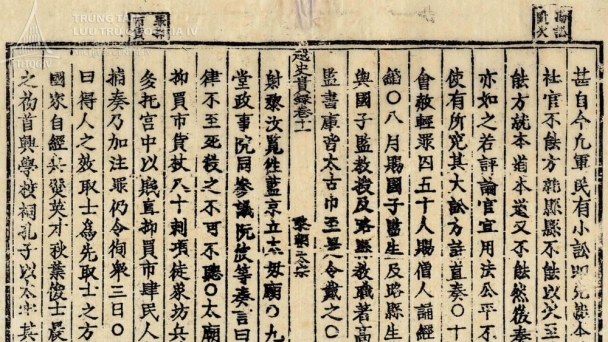 甚自今凡軍民有小訟即先詣本
社官不能方詣縣縣不能以次至
能方就本道本道又不能然後奏
亦如之若評論官宜用法公平不
使有所冤其大訟方詣直奏〇十
會赦輕罪囚五十人賜僧人誦經
〇八月賜國子監生及路縣生
與國子監教授及路縣教職著高
監書庫皆太古巾至是令戴之〇
越史實錄卷十一
射黎汝覽往藍京立太母廟〇九
堂政事院同參議阮等奏言曰
律不至死殺之不可不聽〇太廟
抑買市貨杖八十刺項徒象坊兵
多托宮中以賤直抑買市肆民人
捕奏乃加注罪仍令徇衆三日〇
曰得人之效取士爲先取士之方
國家自經兵燹英才秋葉俊士晨
之初首興學校祠孔子以太牢其
TRUNG TÂM
LƯU TRỮ QUỐC GIA IV